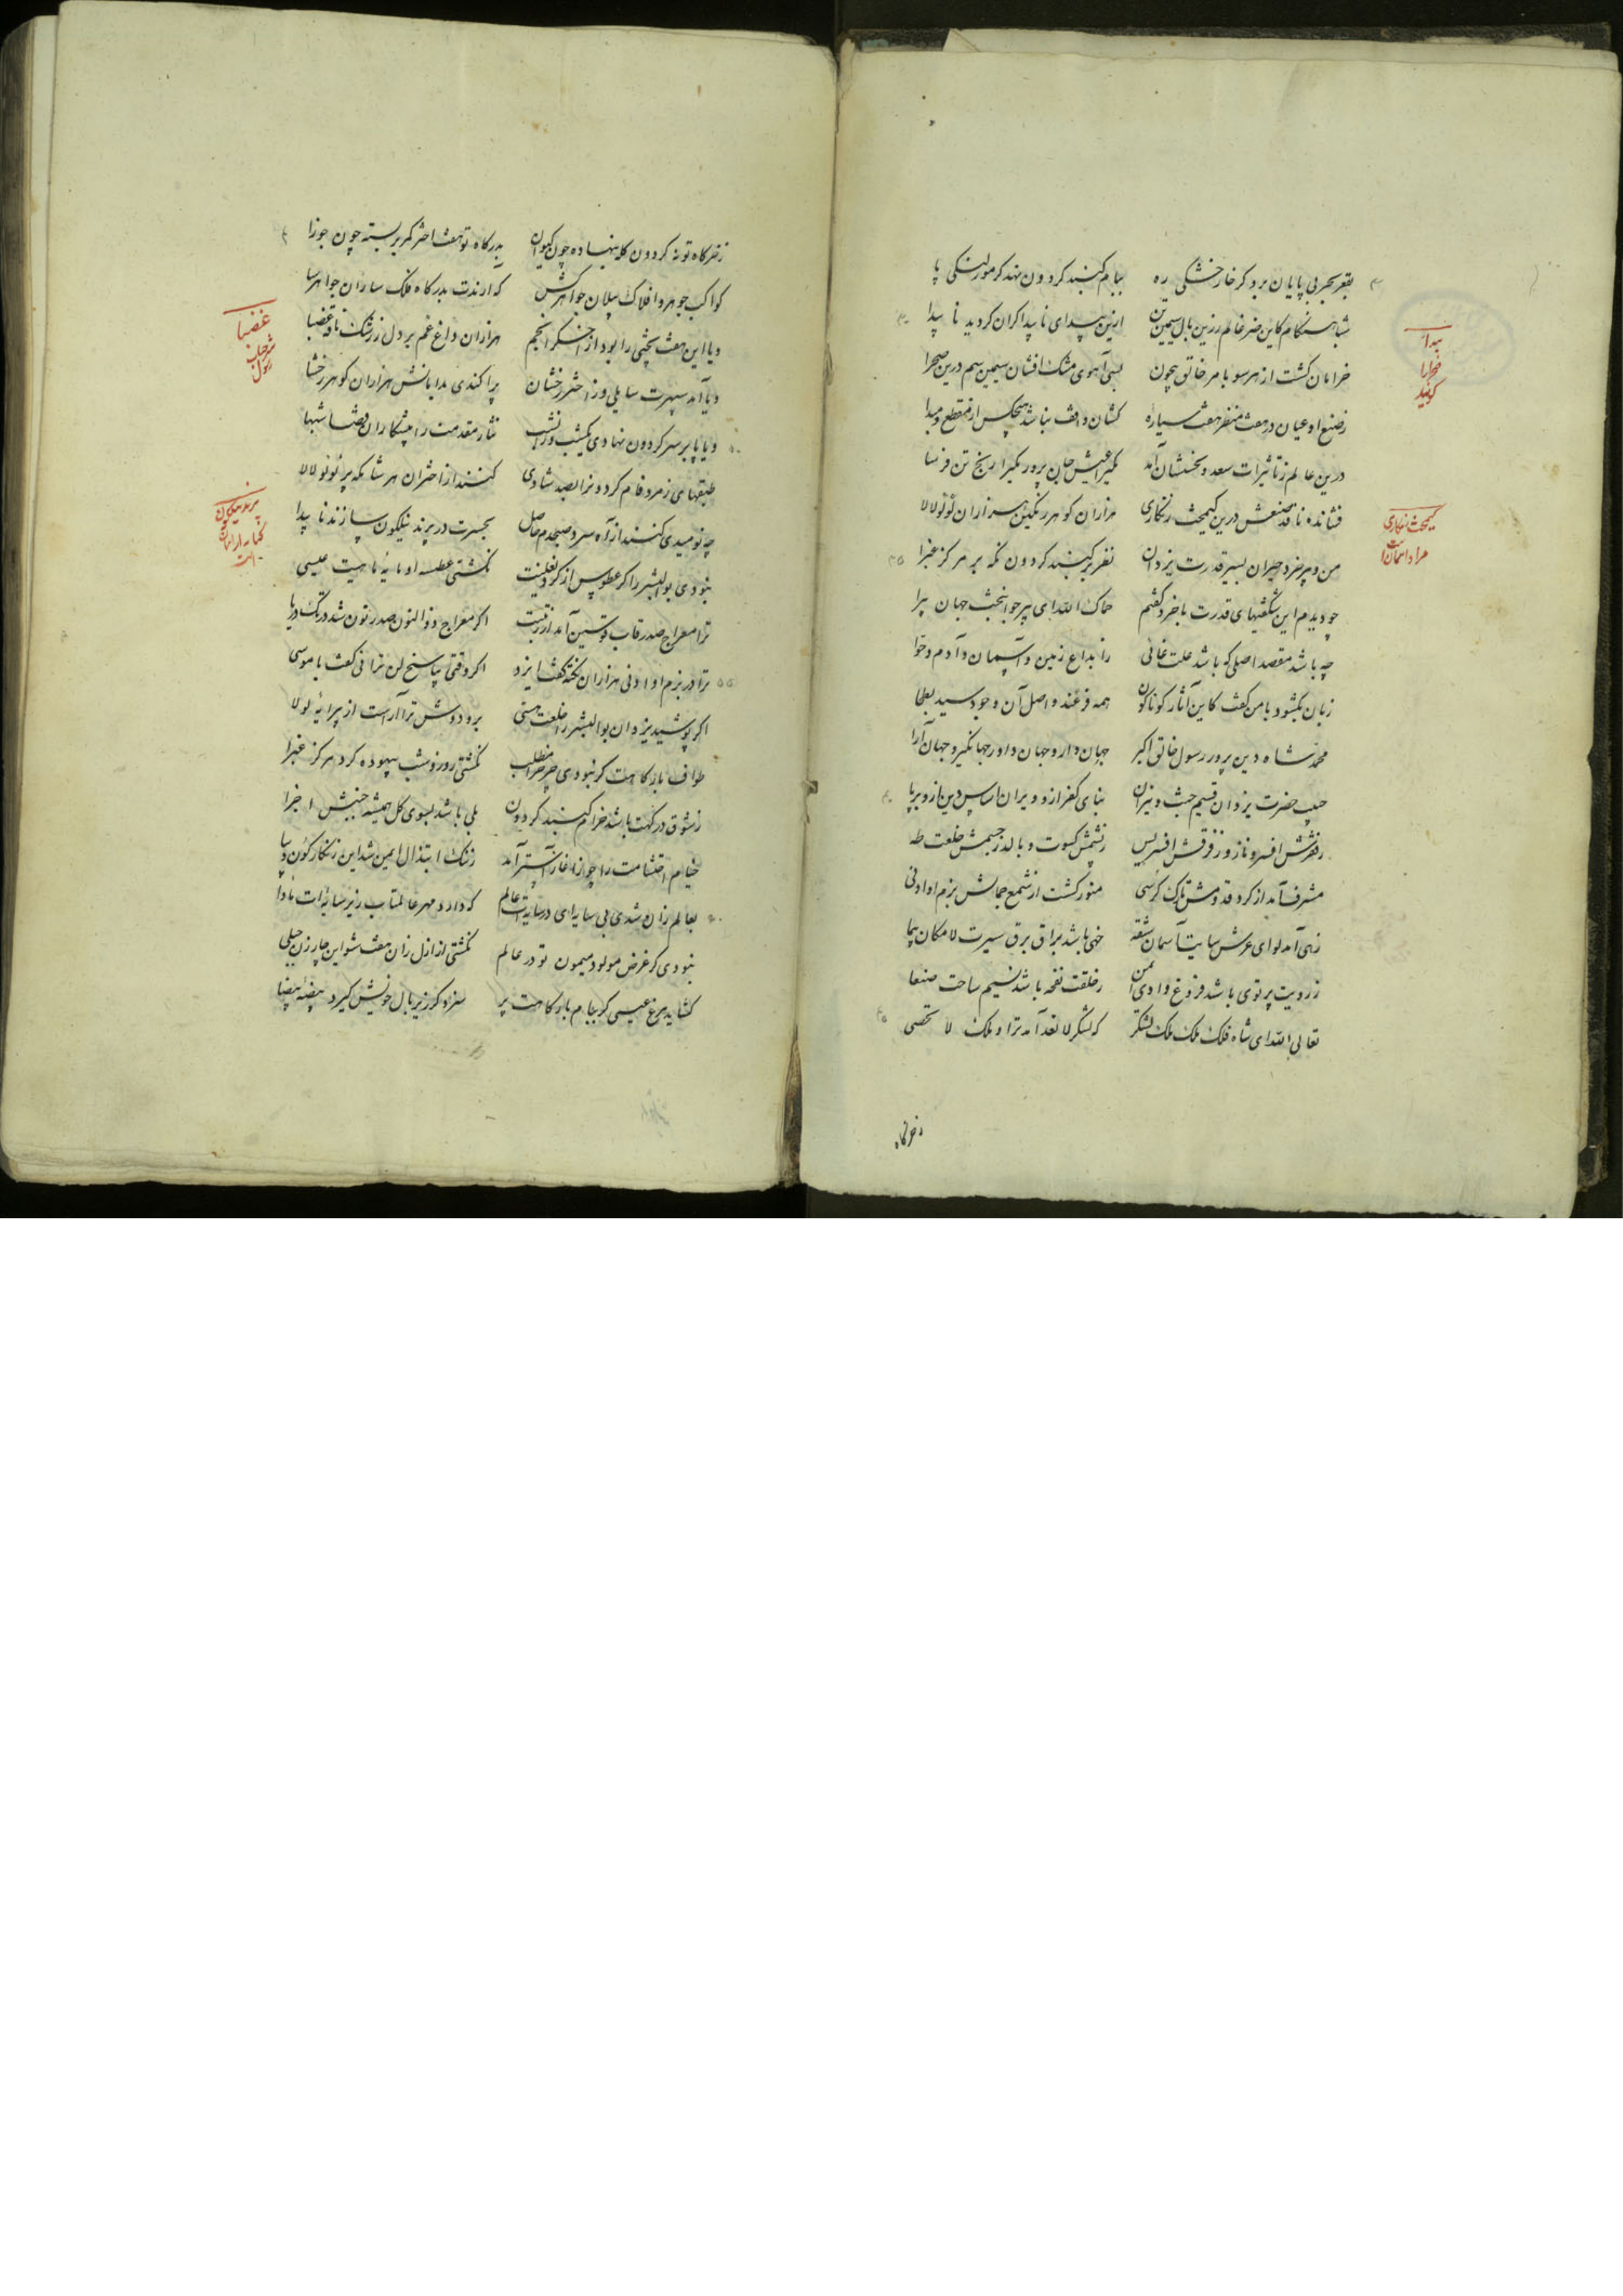 بقعر بحر بی پایان برد کر خار خشکی ره ببام کنبد کردون نهد کر مور لنکی پا
شباهنکام کاین ضرغام زرین یال سیمین ازین بیدای ناپیدا کران کردید ناپیدا
خرامان کشت از هر سو بامر خالق بیچون بسی آهوی مشک افشان سیمین سم درین صحرا
ز صنع او عیان در هفت منظر هفت سیاره کشان واقف نباشد هیچکس از مقطع و مبدا
درین عالم ز تاثیرات سعد و نحسشان آمد یکیرا عیش جان پرور یکیرا رنج تن فرسا
فشانده ناقد صنعش درین کیمخت زنکاری هزاران کوهر رنکین هزاران لؤلؤ لالا
من و پیر خرد حیران بسیر قدرت یزدان نظر بر کنبد کردون نکه بر مرکز غبرا
چو دیدم این شکفتیهای قدرت با خرد کفتم حماک الله ای پیر جوانبخت جهان پیرا
چه باشد مقصد اصلی که باشد علت غائی ز ابداع زمین و آسمان و آدم و حوا
زبان بکشود با من کفت کاین آثار کوناکون همه فرعند و اصل آن وجود سید بطحا
محمد شاه دین پرور رسول خالق اکبر جهاندار و جهان داور جهانکیر و جهان آرا
حبیب حضرت یزدان قسیم جنت و نیران بنای کفر ازو ویران اساس دین ازو برپا
ز فقرش افسر و نازد ز فرقش افسر یس ز شمش کسوت و بالد ز جسمش خلعت طه
مشرف آمد از کرد قدومش تارک کرسی منور کشت از شمع جمالش بزم او ادنی
زهی آمد لوای عرش سایت آسمان شقه خهی باشد براق برق سیرت لامکان پیما
ز رویت پرتوی باشد فروغ وادی ایمن ز خلقت نفحه باشد نسیم ساحت صنعا
تعالی الله ای شاه فلک ملک ملک لشکر که لشکر لا تعد آمد ترا و ملک لا تحصی
بیدا
صحرا را
کویند
کیمخت زنکاری
مراد آسمان است
ز خرکاه تو نه کردون کله بنهاده چون کیوان بدرکاه تو هفت اختر کمر بربسته چون جوزا
کواکب جوهر و افلاک پیلان جواهرکش که آرندت بدرکاه فلک سا ران جواهرسا
و یا این هفت بختی را بود از اخکر انجم هزاران داغ غم بر دل ز رشک ناقه غضبا
و یا آمد سپهرت سایلی وز اختر رخشان پراکندی بدامانش هزاران کوهر رخشا
و یا پا بر سر کردون نهادی یکشب و زانشب نثار مقدمت را پیشکاران قضا شبها
طبقهای زمرد فام کردونرا بصد شادی کنند از اختران هر شامکه پر لؤلؤ لالا
چو نومیدی کنند از آه سرد صبحدم حاصل بحسرت در پرند نیلکون سازند ناپیدا
نبودی بوالبشر را کر عطوس از کرد نعلینت نکشتی عطسه او مایه ماهیت عیسی
ترا معراج صدر قاب قوسین آمد از رتبت اکر معراج ذوالنون صدر نون شد در تک دریا
ترا در بزم او ادنی هزاران نکته کفت ایزد اکر وقتی بپاسخ لن ترانی کفت با موسی
اکر پوشید یزدان بوالبشر را خلعت هستی برو دوش ترا آراست از پیرایه لولا
طواف بارکاهت کر نبودی چرخرا مطلب نکشتی روز و شب بیهوده کرد مرکز غبرا
ز شوق درکهت باشد خرام کنبد کردون بلی باشد بسوی کل همیشه جنبش اجزا
خیام احتشامت را چو از آغاز آستر آمد ز ننک ابتذال ایمن شد این زنکارکون دیبا
بعالم زان شدی بی سایه ای در سایه ات عالم که دارد مهر عالمتاب زیر سایه ات ماوا
نبودی کر غرض مولود میمون تو در عالم نکشتی از ازل زان هفت شو این چار زن حبلی
کشاید مرغ عیسی کر ببام بارکاهت پر سزد کر زیر بال خویش کیرد بیضه بیضا
غضبا
شتر جناب
رسول
پرند نیلکون
کنایه از آسمان
است
ز خرکاه